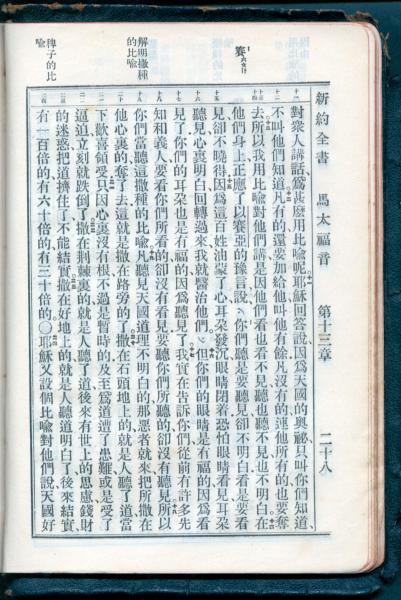 新約全書 馬太福音 第十三章 二十八
對衆人講話爲甚麼用比喻呢、耶穌回答說、因爲天國的奧祕、只叫你們知道、
不叫他們知道、凡有的、還要加給他、叫他有餘、凡沒有的、連他所有的、也要奪
去、所以我用比喻對他們講、是因他們看也看不見、聽也聽不見、也不明白、在
他們身上、正應了以賽亞的豫言、說、你們聽是要聽見、卻不明白、看是要看
見、卻不曉得、因爲這百姓油蒙了心、耳朵發沉、眼睛閉着、恐怕眼睛看見、耳朵
聽見、心裏明白、回轉過來、我就醫治他們、但你們的眼睛是有福的、因爲看
見了、你們的耳朵也是有福的、因爲聽見了、我實在告訴你們、從前有許多先
知和義人、要看你們所看的、卻沒有看見、要聽你們所聽的、卻沒有聽見、所以
你們當聽這撒種的比喻、凡聽見天國道理不明白的、那惡者就來、把所撒在
他心裏的、奪了去、這就是撒在路旁的了、撒在石頭地上的、就是人聽了道、當
下歡喜領受、只因心裏沒有根、不過是暫時的、及至爲道遭了患難、或是受了
逼迫、立刻就跌倒了、撒在荊棘裏的、就是人聽了道、後來有世上的思慮、錢財
的迷惑、把道擠住了、不能結實、撒在好地上的、就是人聽道明白了、後來結實、
有一百倍的、有六十倍的、有三十倍的〇耶穌又設個比喻對他們說、天國好
賽
解明撒種
的比喻
稗子的比
喻